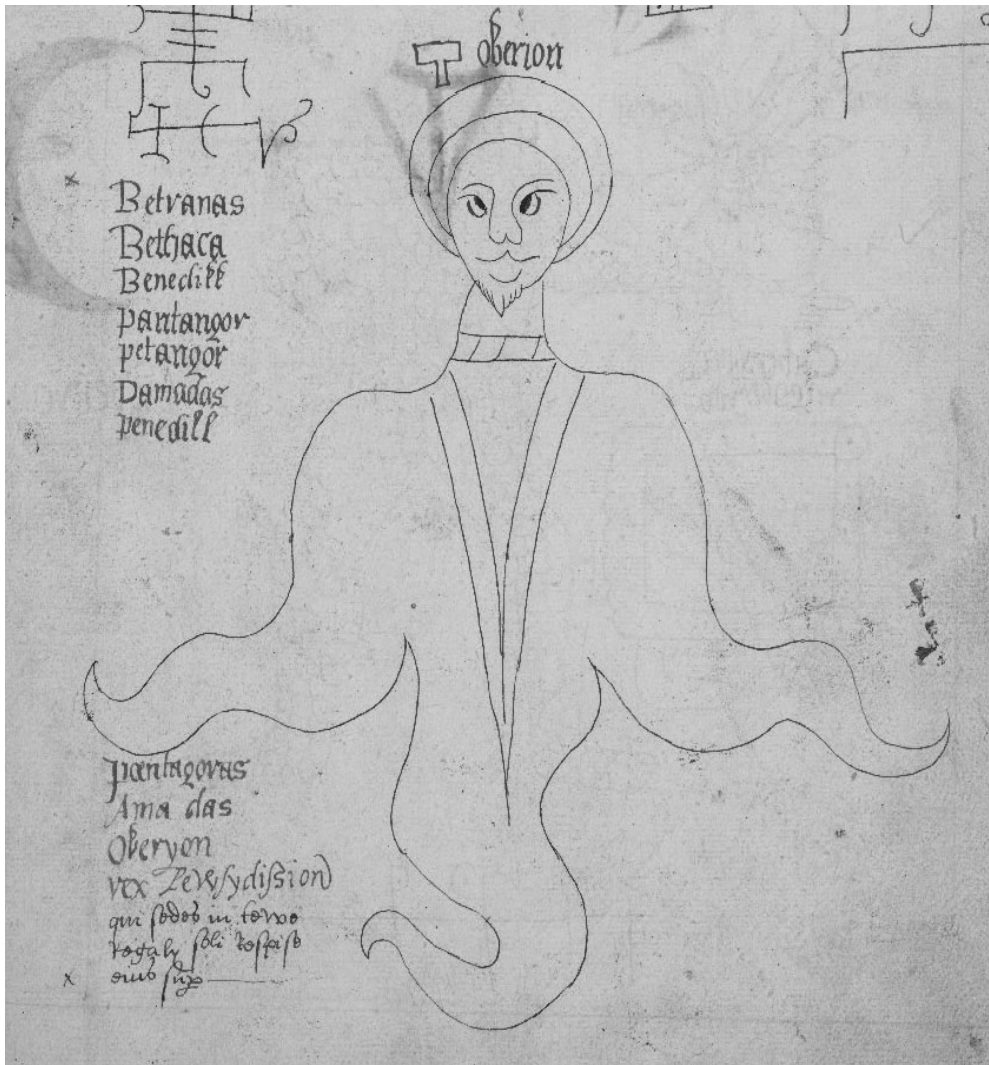 oberion
Betranas
Bethaca
Benedikk
pantangor
petangor
Damadas
penedill
pentagoras
Ama das
Oberyon
rex
qui sedes in
regaly soli respise
eius